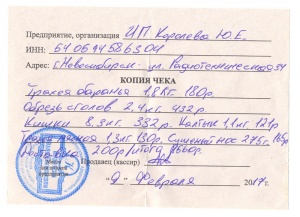 Предприятие, организация ИП Королева Ю.Е.
ИНН:
Адрес: г.Новосибирск ул. Радиотехническая
КОПИЯ ЧЕКА
Трахея баранья 1,8кг 180р.
Обрезь столов. 2.4кг 432р.
Кишки 8,3кг 332р. Калтык 1,1кг 121р
1.3кг 130р. Сушеный нос 275г.
200р/ Итого
Продавец (кассир)
"9" Февраля 2017г.